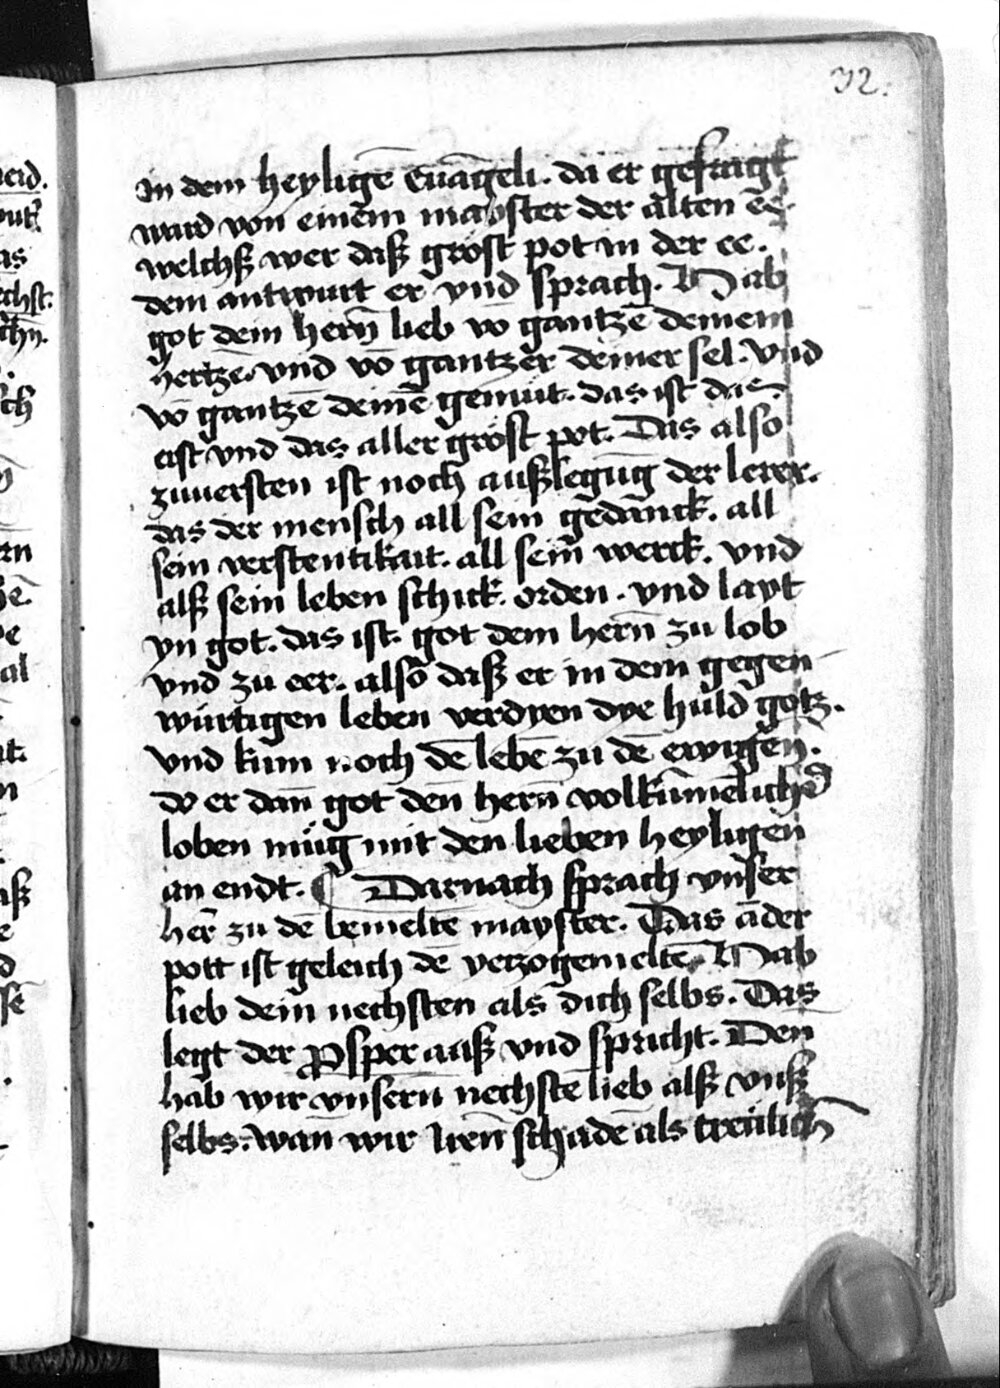 32.
in dem heyligē Euāgeli. da er gefragt
ward von einem mayster der alten ee.
welchß wer daß gröst pot in der ee.
dem antwurt er vnd sprach. Hab
got dein hern̄ lieb vō gantzē deinem
hertzē. vnd vō gantzer deiner sel. vnd
vō gantzē deinē gemüt. das ist das
erst vnd das aller gröst pot. Das also
zuuersten ist noch außlegūg der lerer.
das der mensch all sein gedanck. all
sein verstentikait. all sein werck. vnd
alß sein leben schick. orden. vnd layt
yn got. das ist. got dem hern̄ zu lob
vnd zu eer. also daß er in dem gegen
würtigen leben verdyen dye huld gotz.
vnd kum noch dē lebē zu dē ewigen.
do er dan̄ got den hern̄ volkūmēlicher
loben müg mit den lieben heyligen
an endt. ¶ Darnach sprach vnser
her̄ zu dē bemeltē mayster. Das āder
pott ist geleich dē vetzogemeltē. Hab
lieb dein nechsten als dich selbs. Das
legt der Prosper auß vnd spricht. Den
hab wir vnsern nechstē lieb alß vnß
selbs. wan̄ wir schadē als treülich